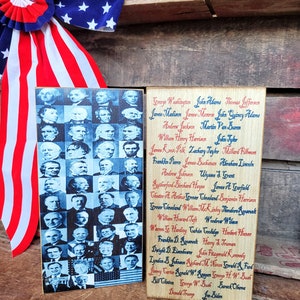 George Washington John Adams Thomas Jefferson
James Madison James Monroe John Quincy Adams
Andrew Jackson Martin Van Buren
William Henry Harrison John Tyler
James K. Polk Zachary Taylor Millard Fillmore
Franklin Pierce James Buchanan Abraham Lincoln
Andrew Johnson Ulysses S. Grant
Rutherford Birchard Hayes James A. Garfield
Chester A. Arthur Grover Cleveland Benjamin Harrison
Grover Cleveland William McKinley Theodore Roosevelt
William Howard Taft Woodrow Wilson
Warren G. Harding Calvin Coolidge Herbert Hoover
Franklin D. Roosevelt Harry S. Truman
Dwight D. Eisenhower John F. Kennedy
Lyndon B. Johnson Richard M. Nixon Gerald R. Ford
Jimmy Carter Ronald W. Reagan George H. W. Bush
Bill Clinton George W. Bush Barack Obama
Donald Trump Joe Biden